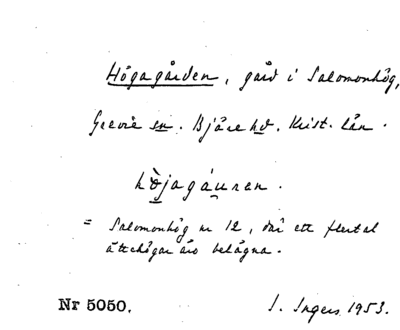 Högagården, gård i Salomonhög,
Grevie sn. Bjäre hd. Krist. län.
hòjagáuren.
= Salomonhög nr 12, där ett flertal
ättehögar äro belägna.
Nr 5050. I. Ingers 1953.